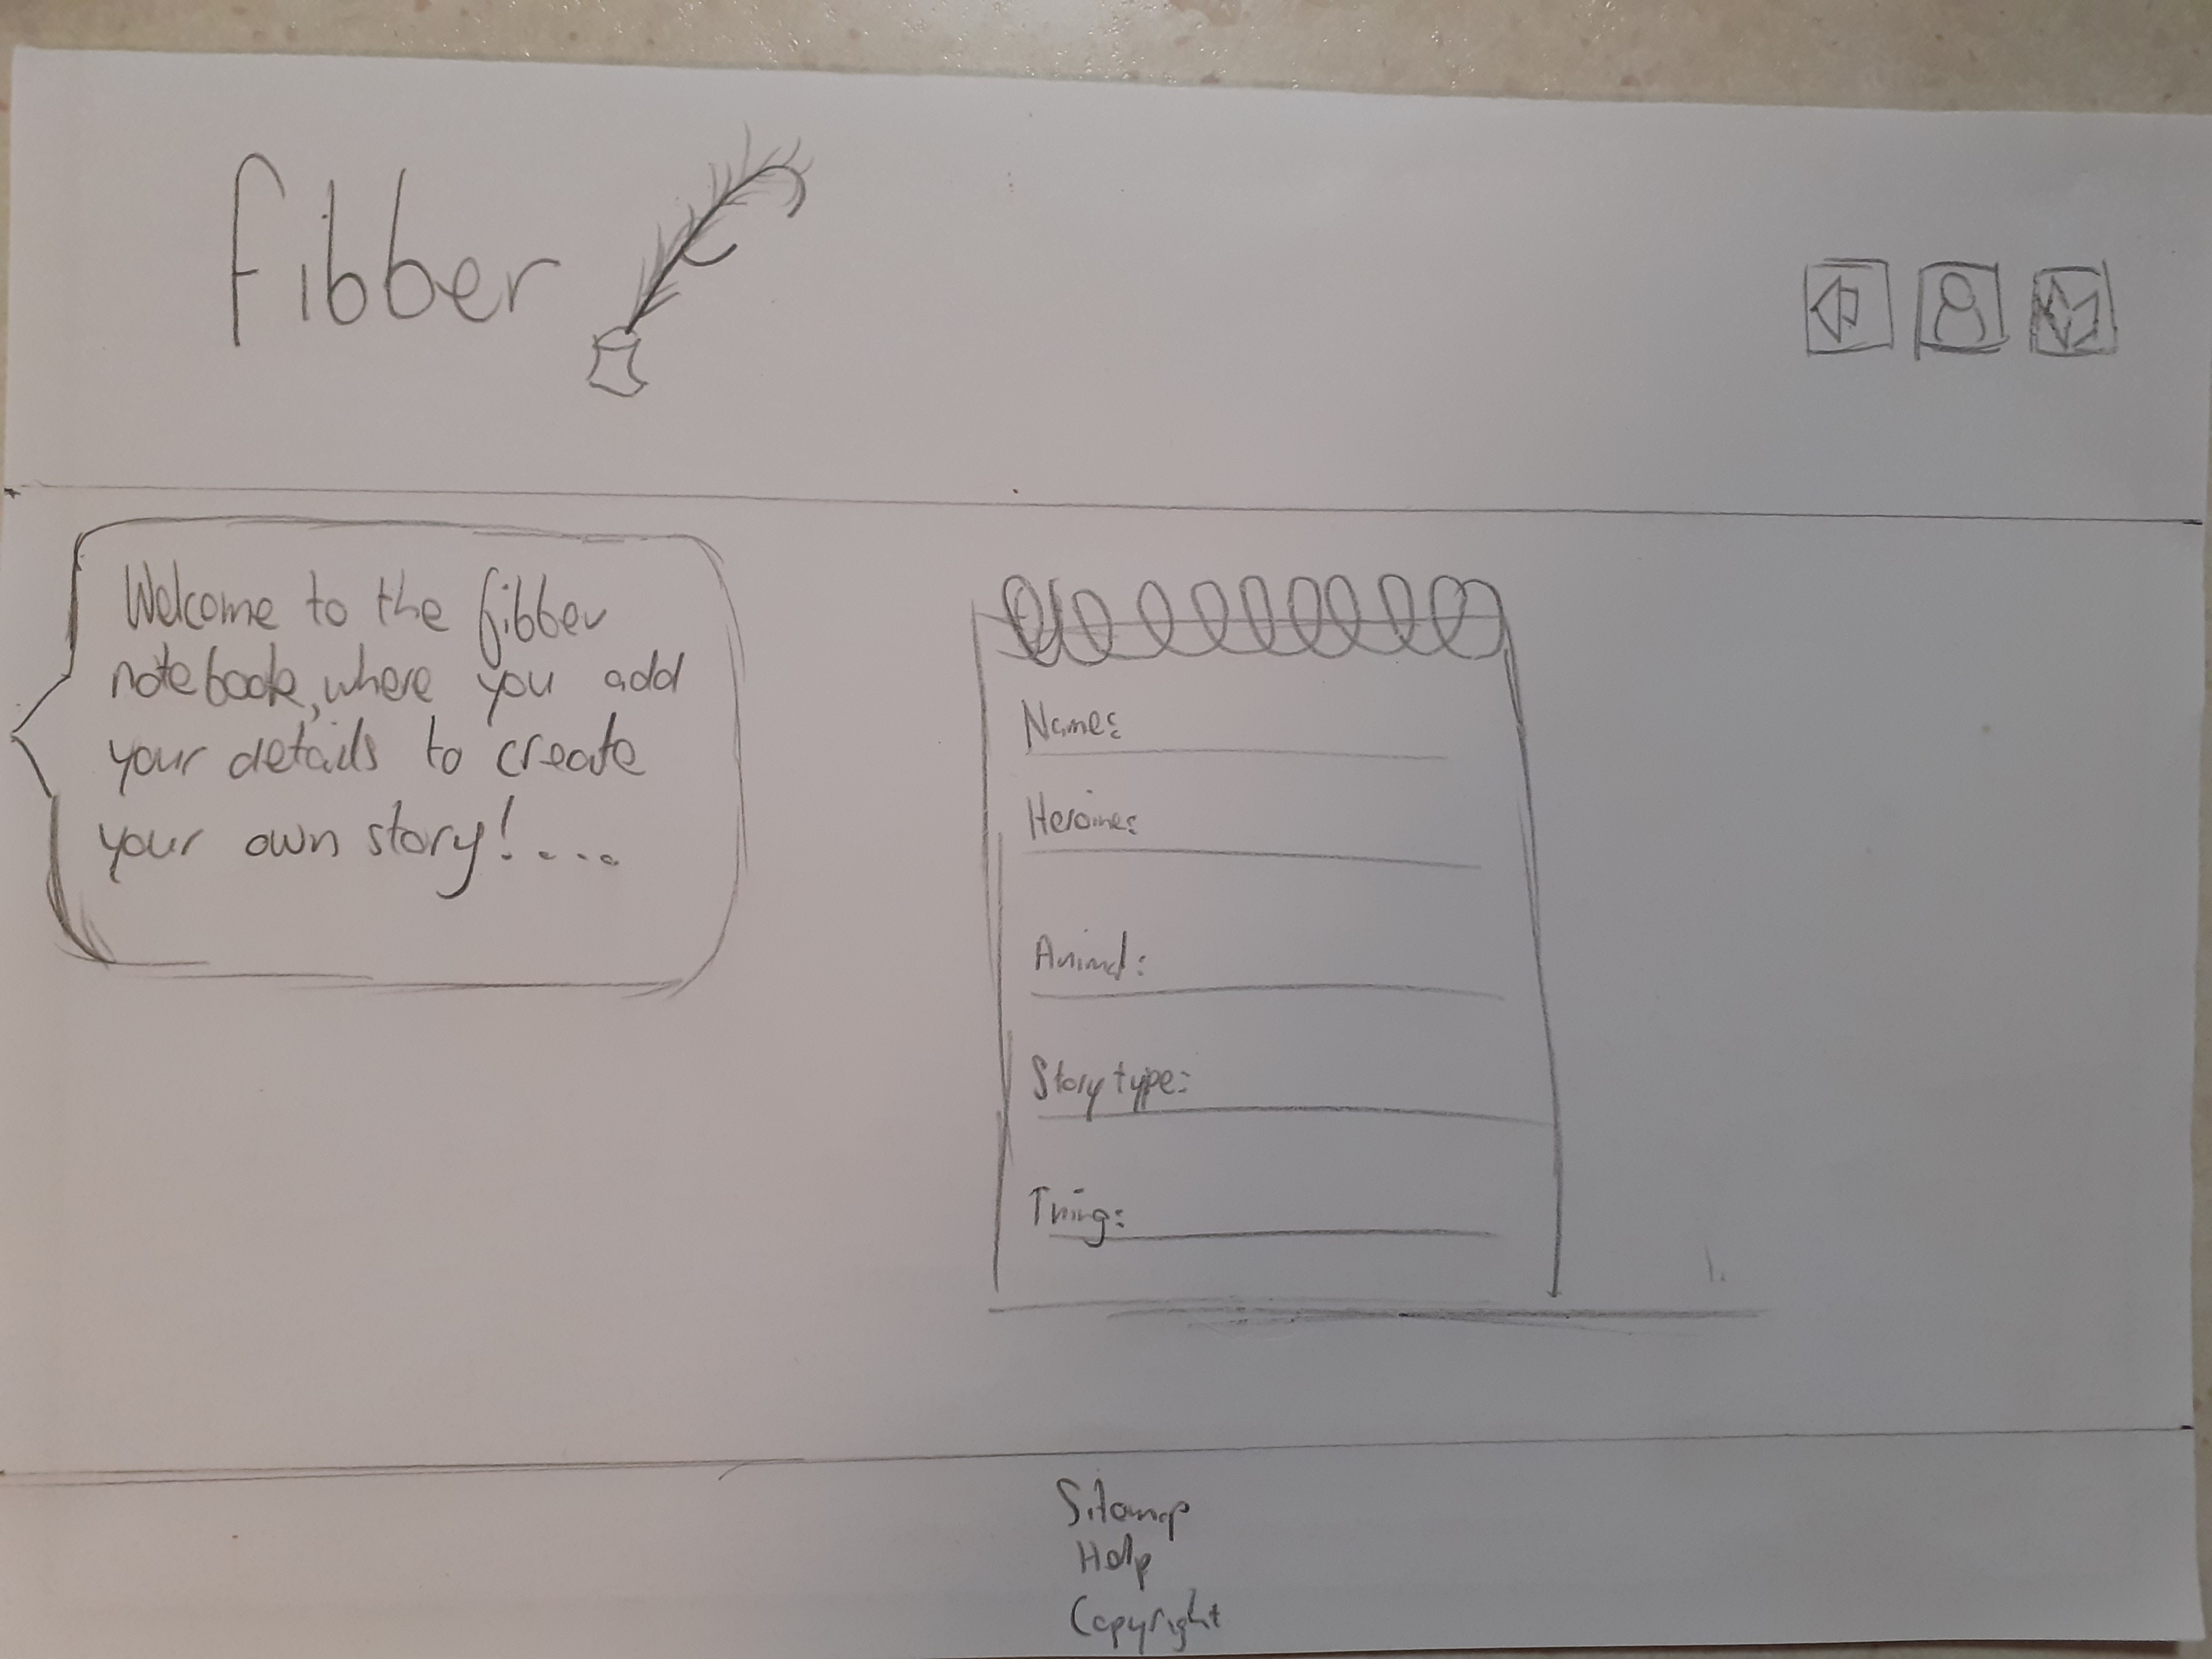 Fibber
Welcome to the fibber
notebook, where you add
your details to create
your own story! ...
Name:
Heroine:
Animal:
Story type:
Thing:
Sitemap
Help
Copyright